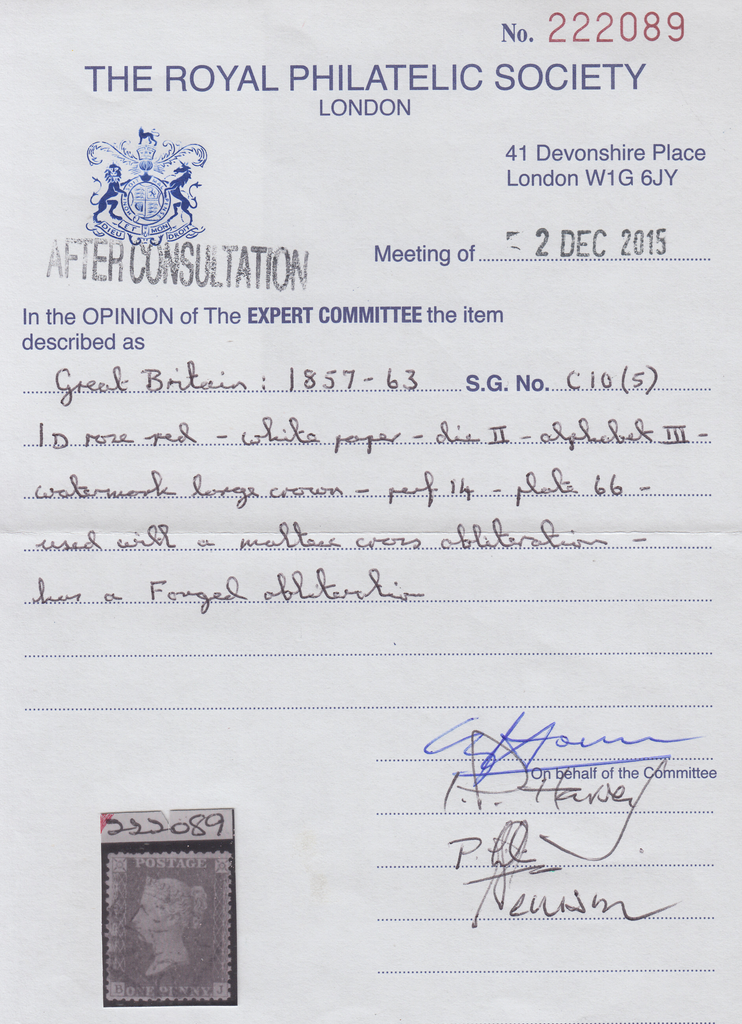 No. 222089
THE ROYAL PHILATELIC SOCIETY
LONDON
41 Devonshire Place
London W1G 6JY
DIEU ET MON DROIT
AFTER CONSULTATION
Meeting of 2 DEC 2015
In the OPINION of The EXPERT COMMITTEE the item
described as
Great Britain: 1857-63 S.G. No. C10(5)
1D rose red - white paper - die II - alphabet III -
watermark large crown - perf 14 - plate 66 -
used with a maltese cross obliteration -
has a Forged obliteration
On behalf of the Committee
222089
POSTAGE
B ONE PENNY J